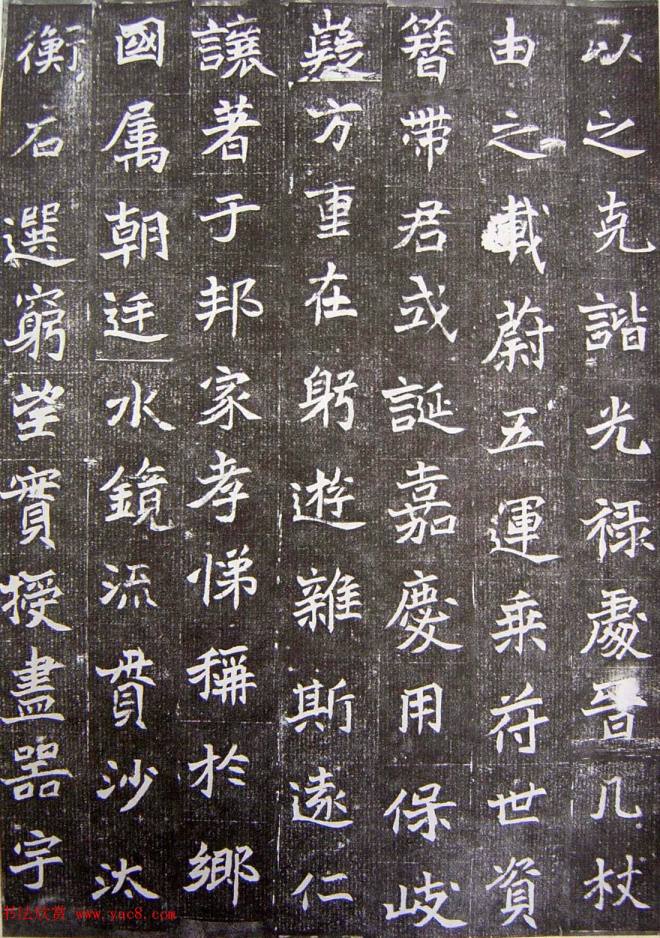 以之克諧光禄處晉几杖
由之載蔚五運乘苻世資
簪帶君或誕嘉慶用保歧
嶷方重在躬遊雜斯遠仁
讓著于邦家孝悌稱於鄉
國属朝廷水鏡流貫沙汰
衡石選窮望實授盡器宇
书法欣赏 www.yac8.com